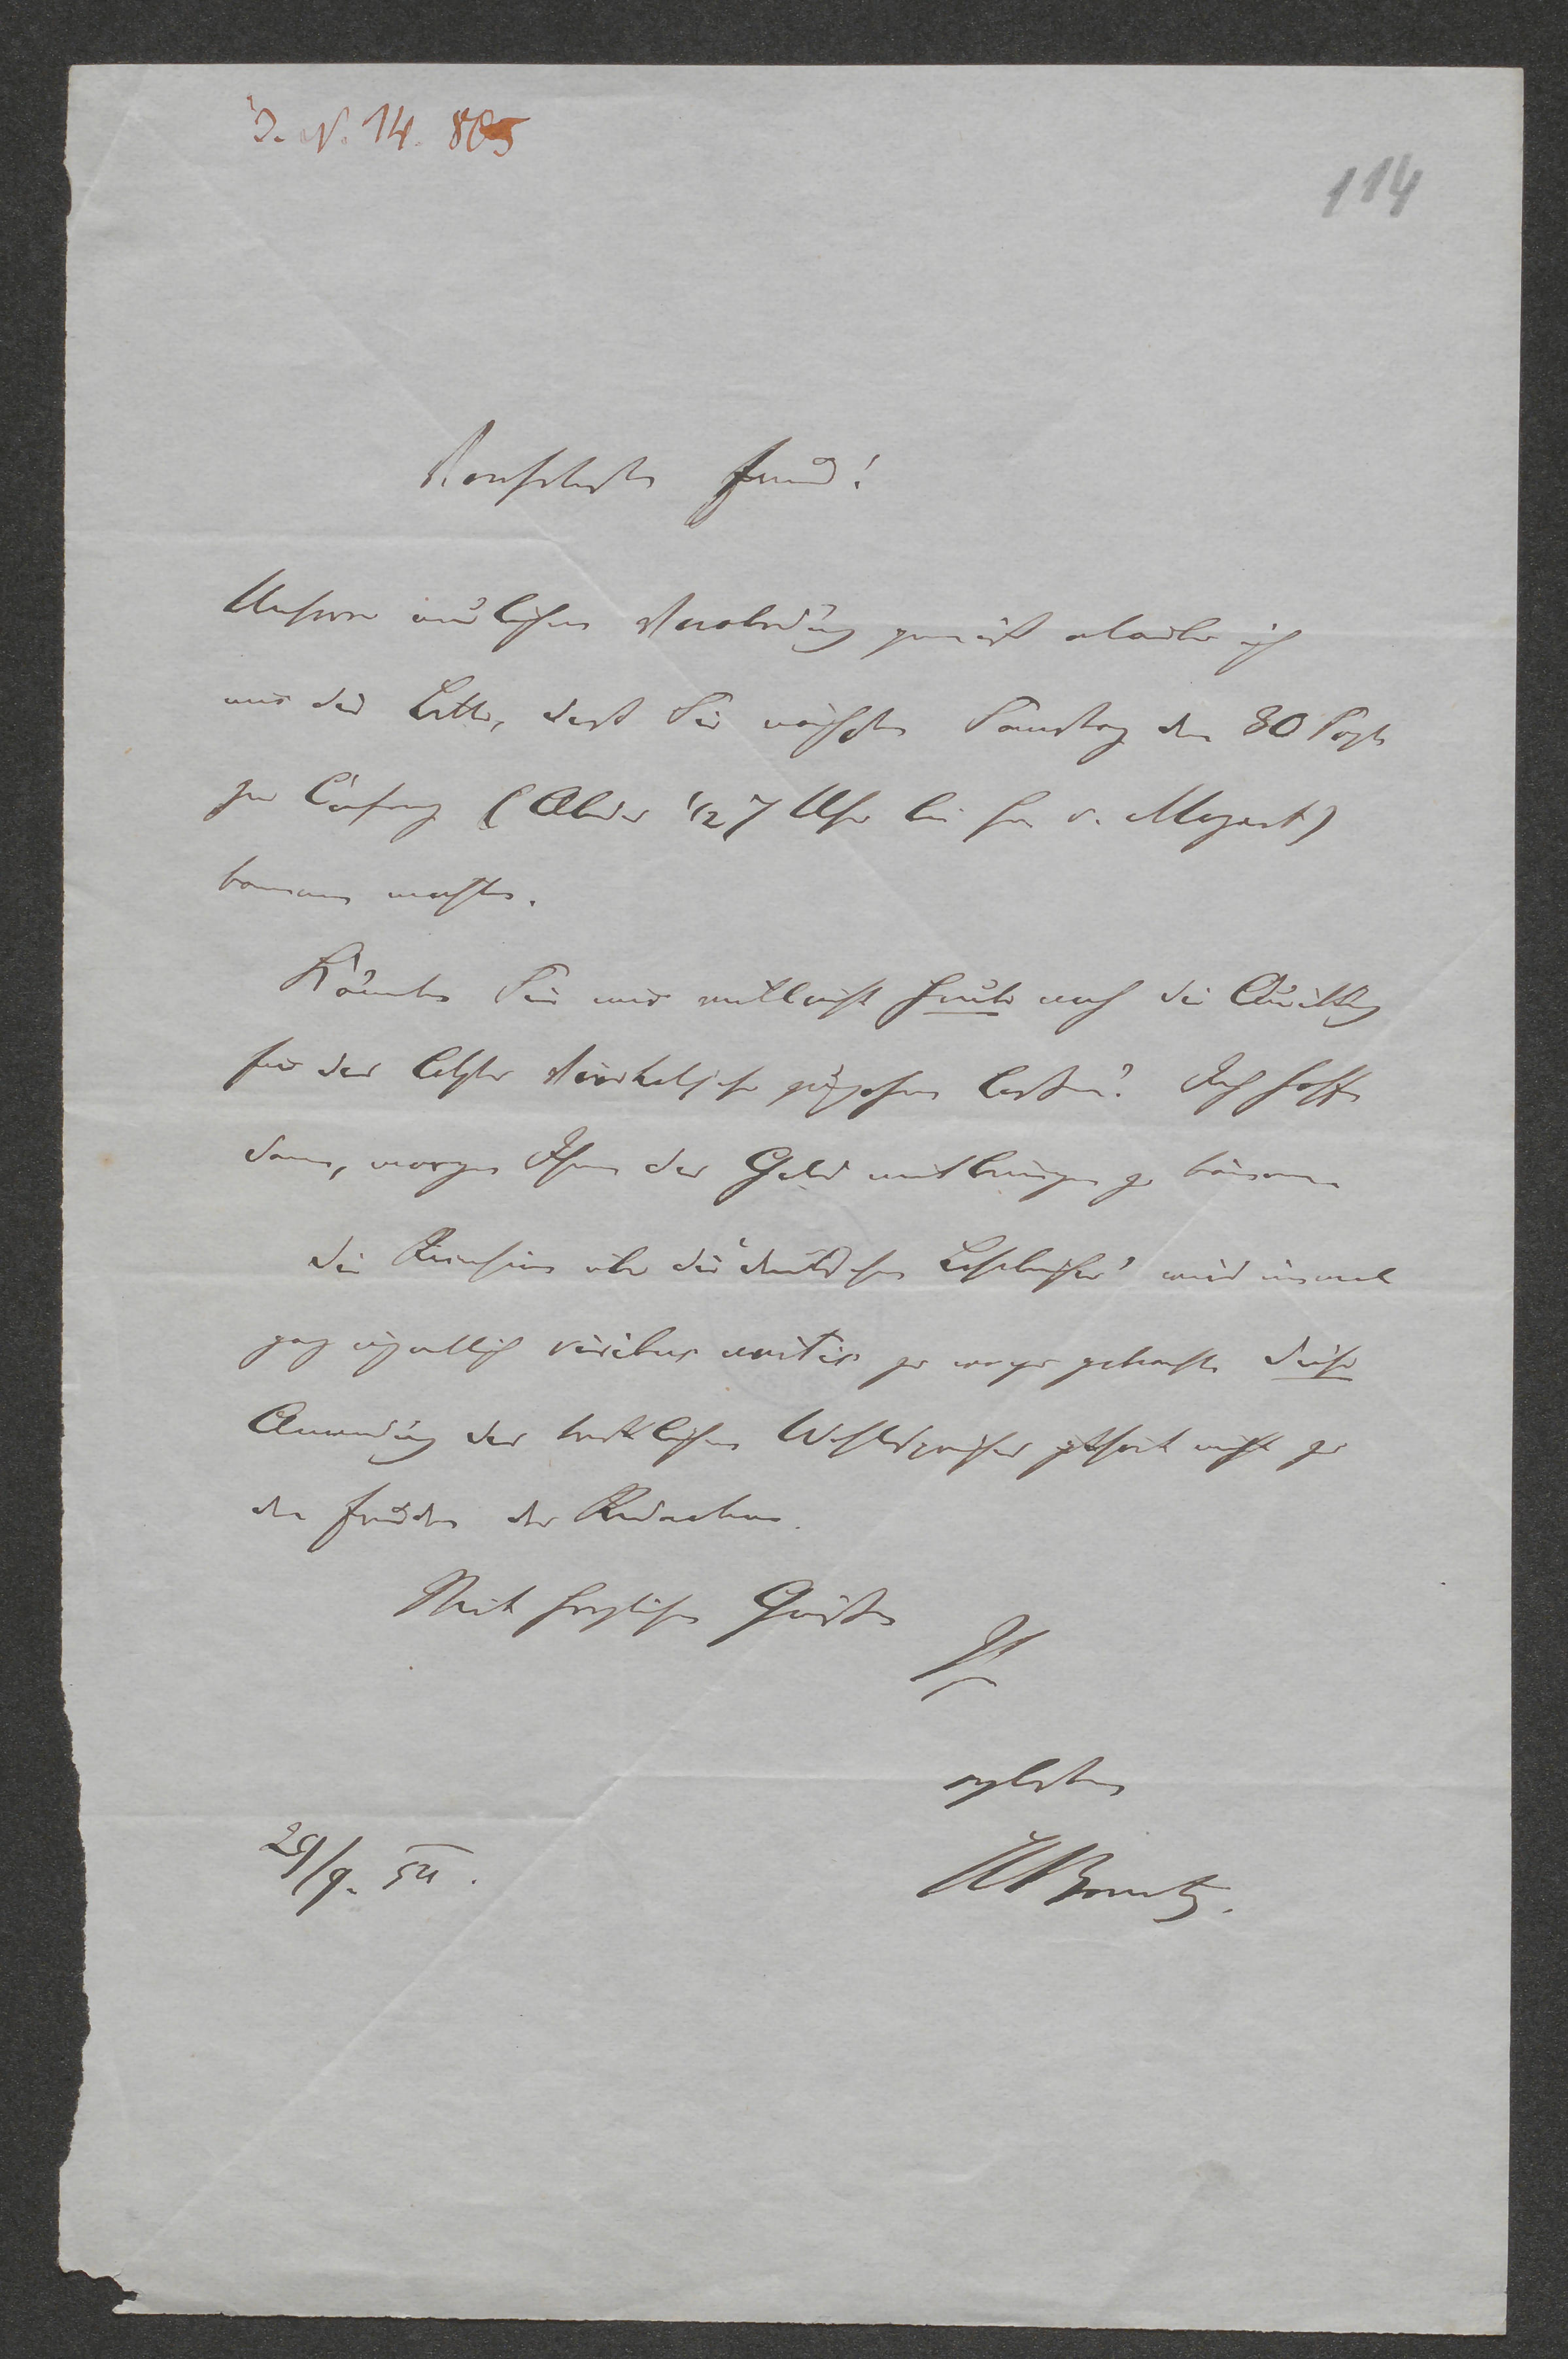 I. N. 14.865
114
Verehrtester Freund!
Unserer mündlichen Verabredung gemäß erlaube ich
mir die Bitte, daß Sie nächsten Samstag den 30 Sept
zur Conferenz (Abends 1/2 7 Uhr bei Hn v. Mozart)
kommen möchten.
Könnten Sie mir vielleicht heute noch die Quittung
für das letzte Vierteljahr zugehen lassen? Ich hoffe
dann, morgen Ihnen das Geld mitbringen zu können
Die Recension über die deutschen Lesebücher wird einmal
ganz eigentlich viribus unitis zu wege gebracht. Diese
Anwendung des trefflichen Wahlspruches gehört nicht zu
den Freuden der Redaction.
Mit herzlichem Gruße
Ihr
ergebenster
29/9. 54.
HBonitz.